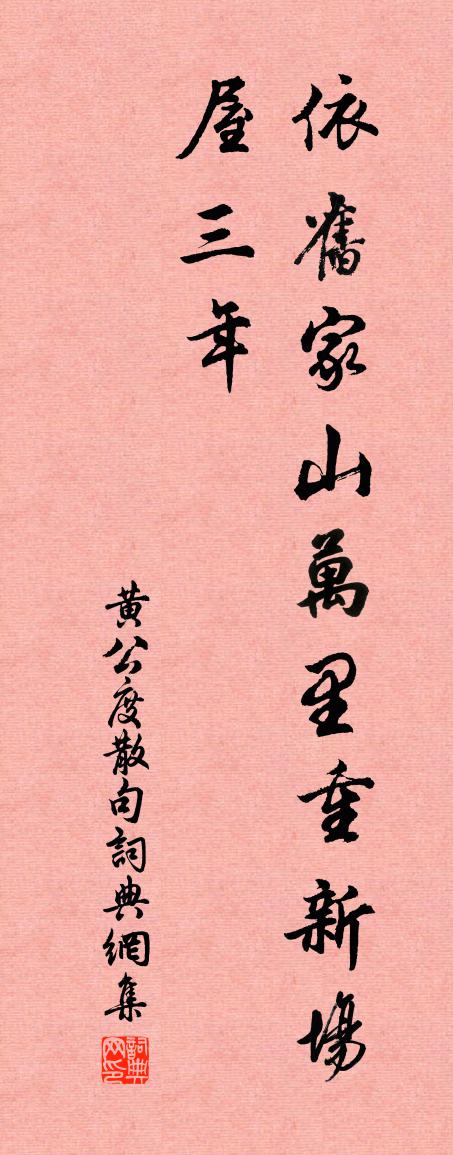 依舊家山萬里重新場
屋三年
黃公度散句詞典網集
詞典网印